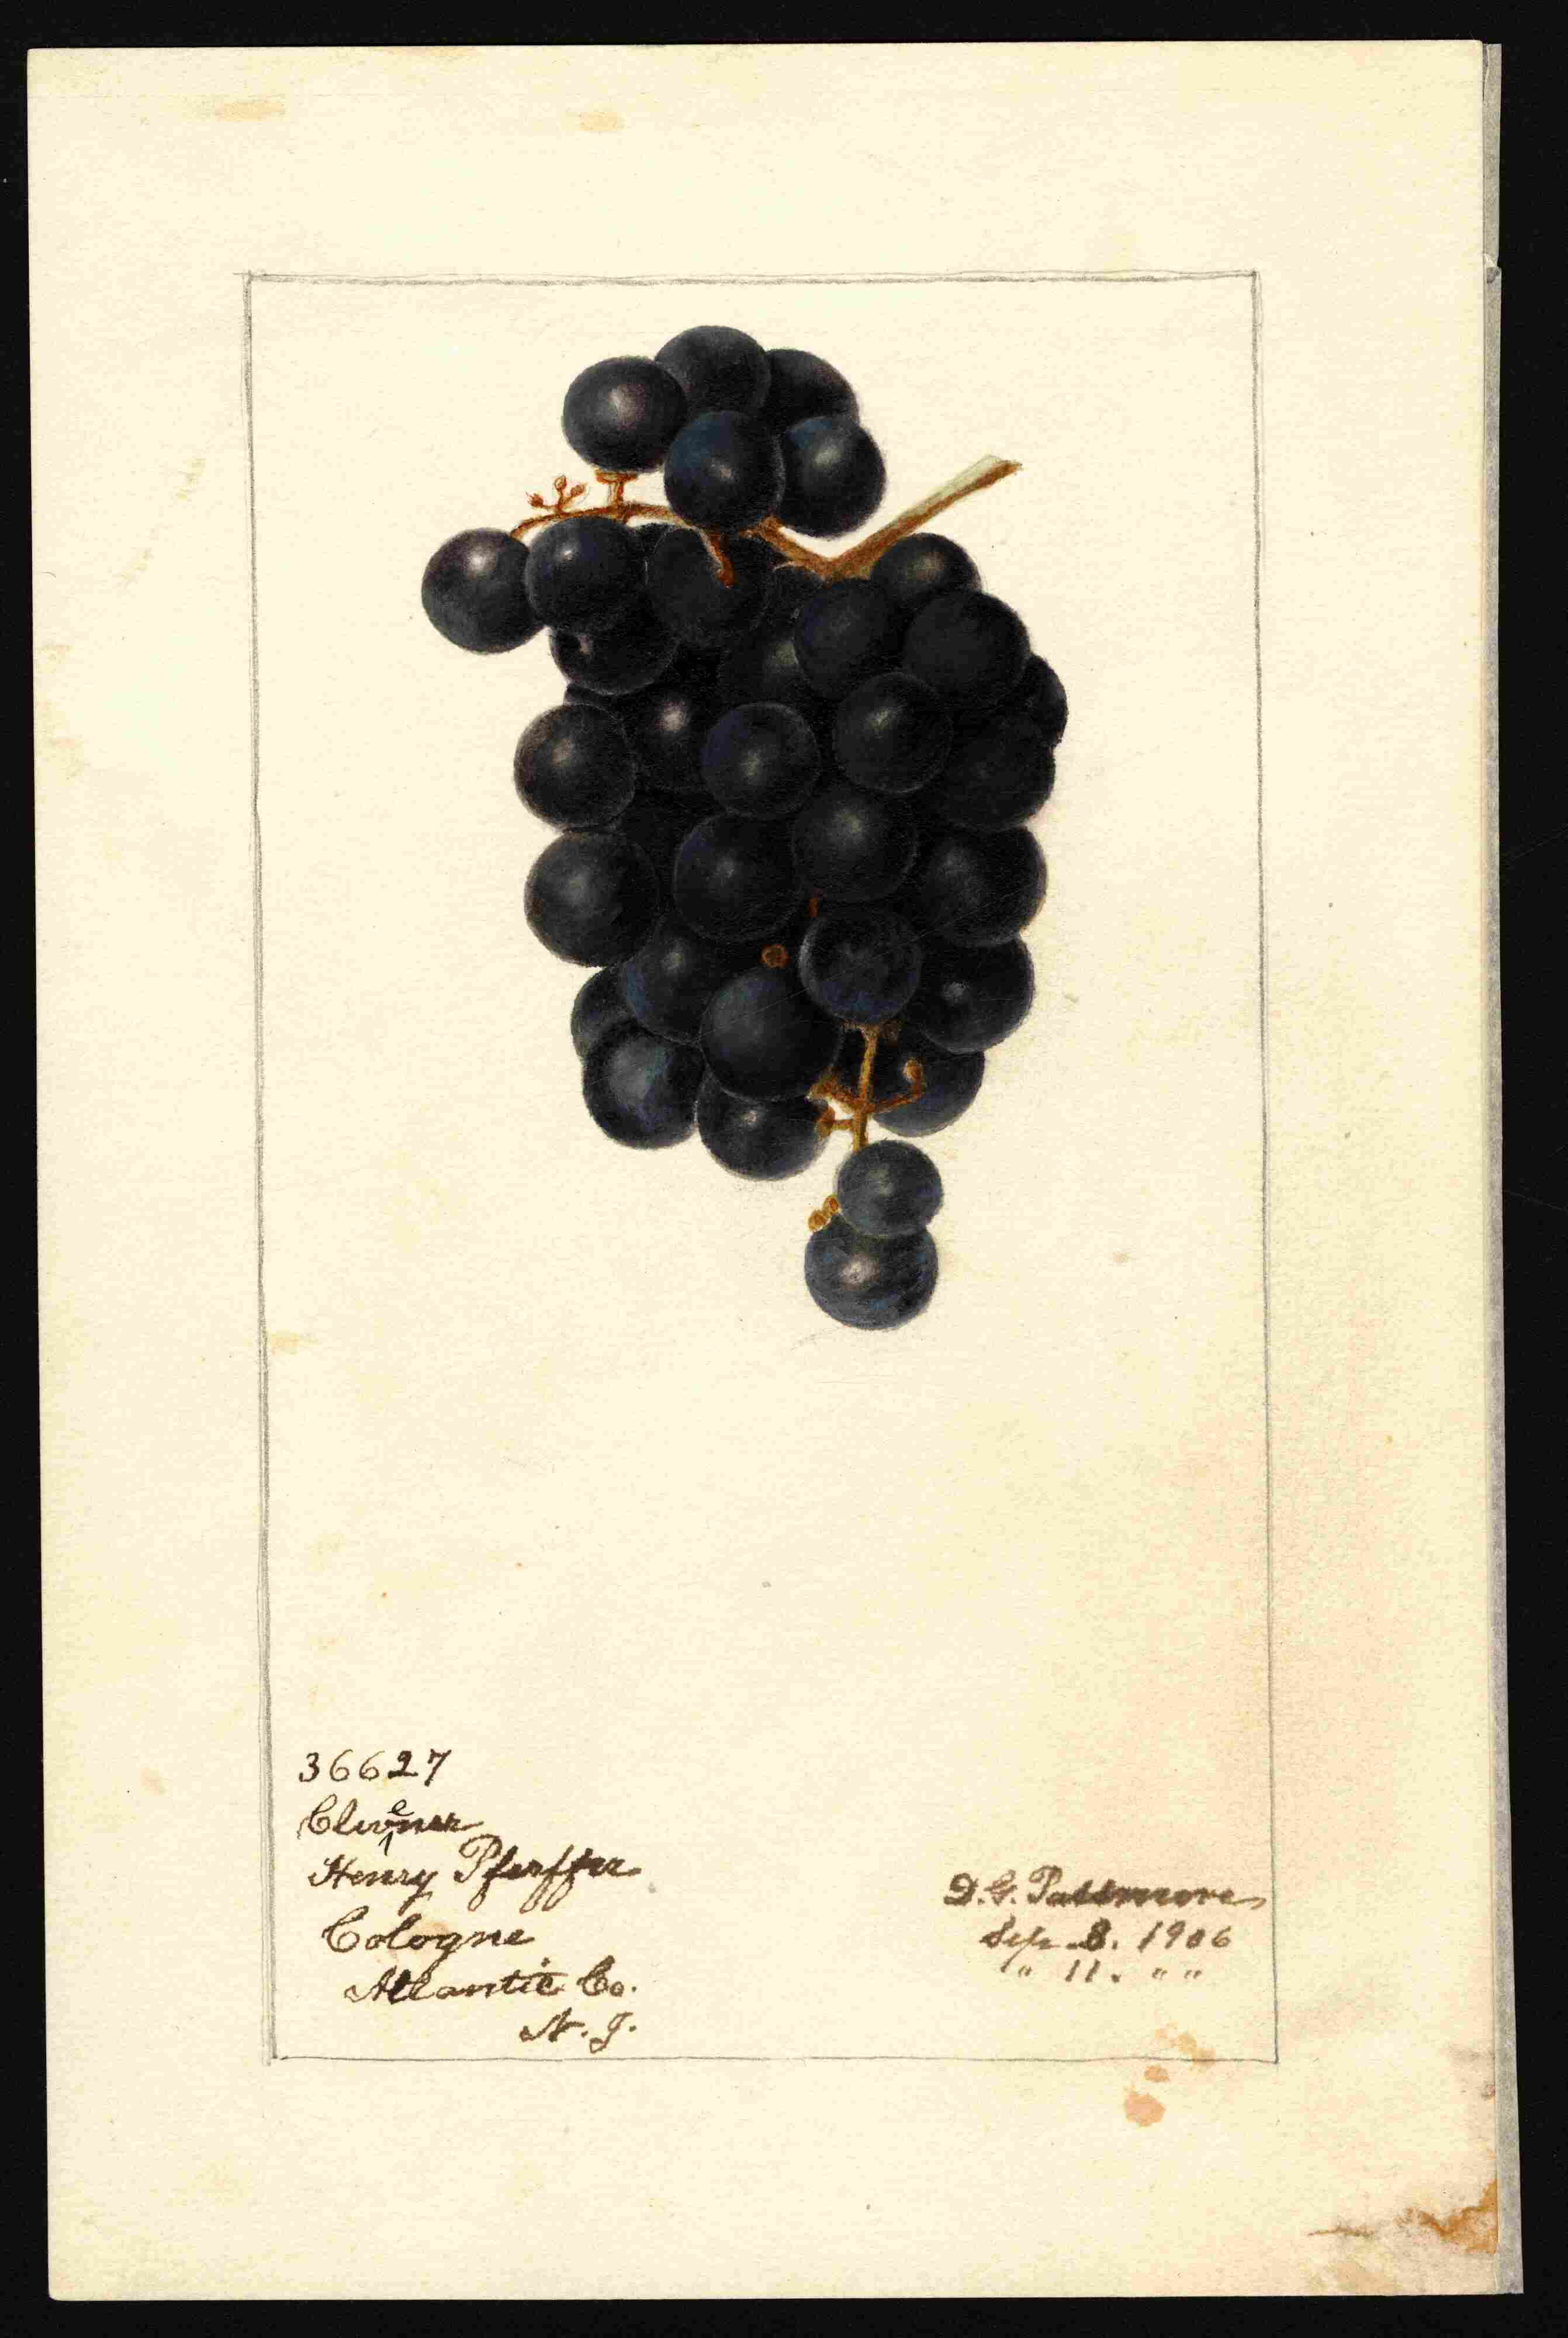 36627
Clevener
Henry Pfeiffer
Cologne
Atlantic Co.
N. J.
D. G. Passmore
Sep. 8. 1906
" 11. " "